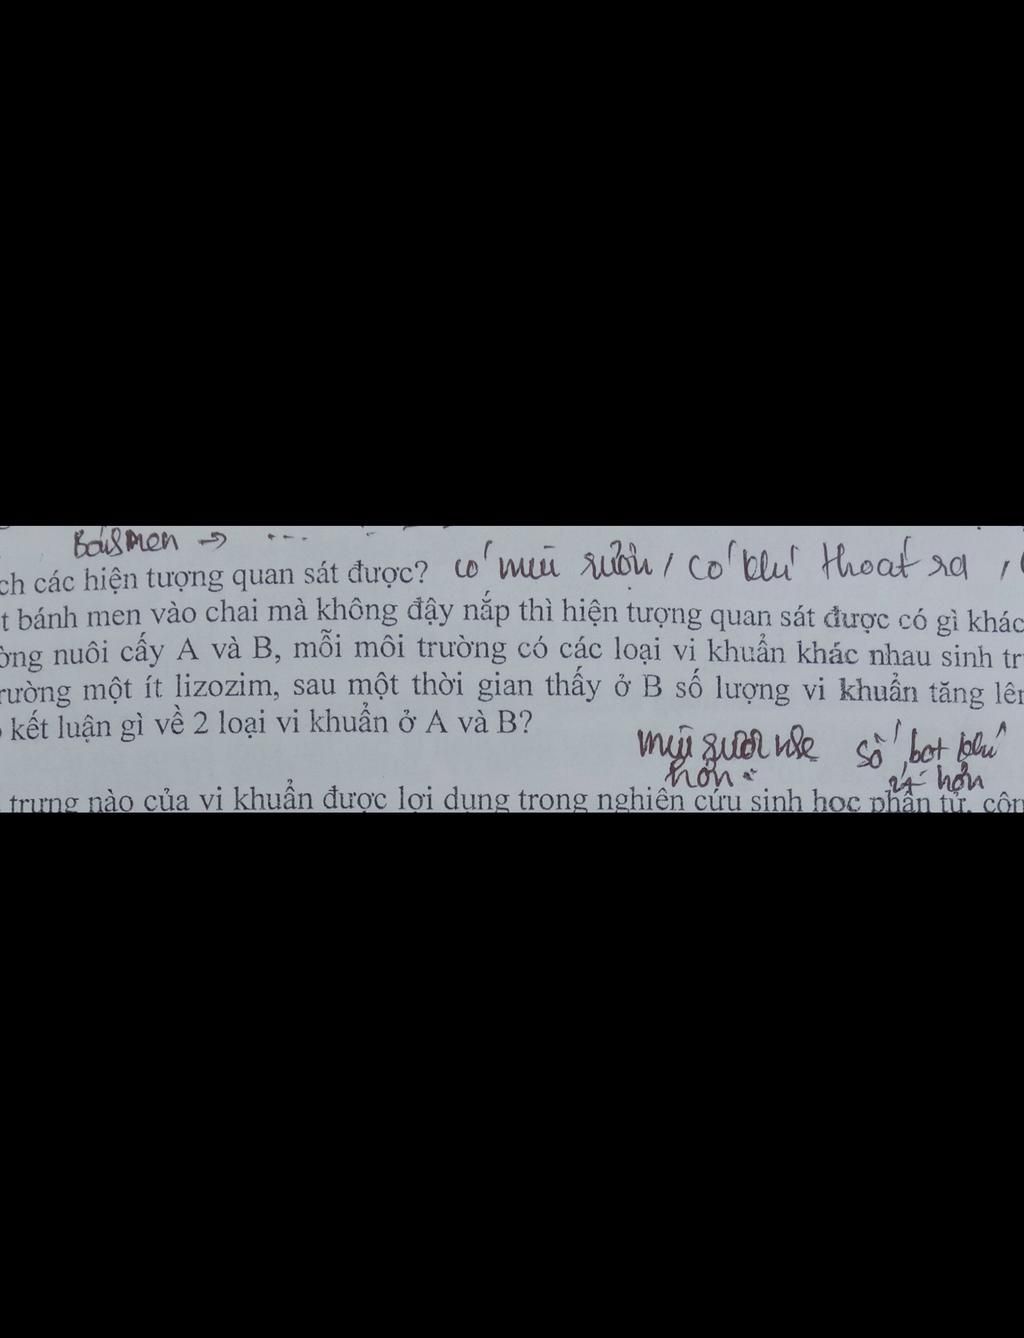 Bánh men → ...
ch các hiện tượng quan sát được? có mùi rượu, có khí thoát ra,
t bánh men vào chai mà không đậy nắp thì hiện tượng quan sát được có gì khác
ờng nuôi cấy A và B, mỗi môi trường có các loại vi khuẩn khác nhau sinh tr
rường một ít lizozim, sau một thời gian thấy ở B số lượng vi khuẩn tăng lên
kết luận gì về 2 loại vi khuẩn ở A và B?
mùi rượu nhẹ hơn. số bọt khí ít hơn
trưng nào của vi khuẩn được lợi dụng trong nghiên cứu sinh học phân tử, côn